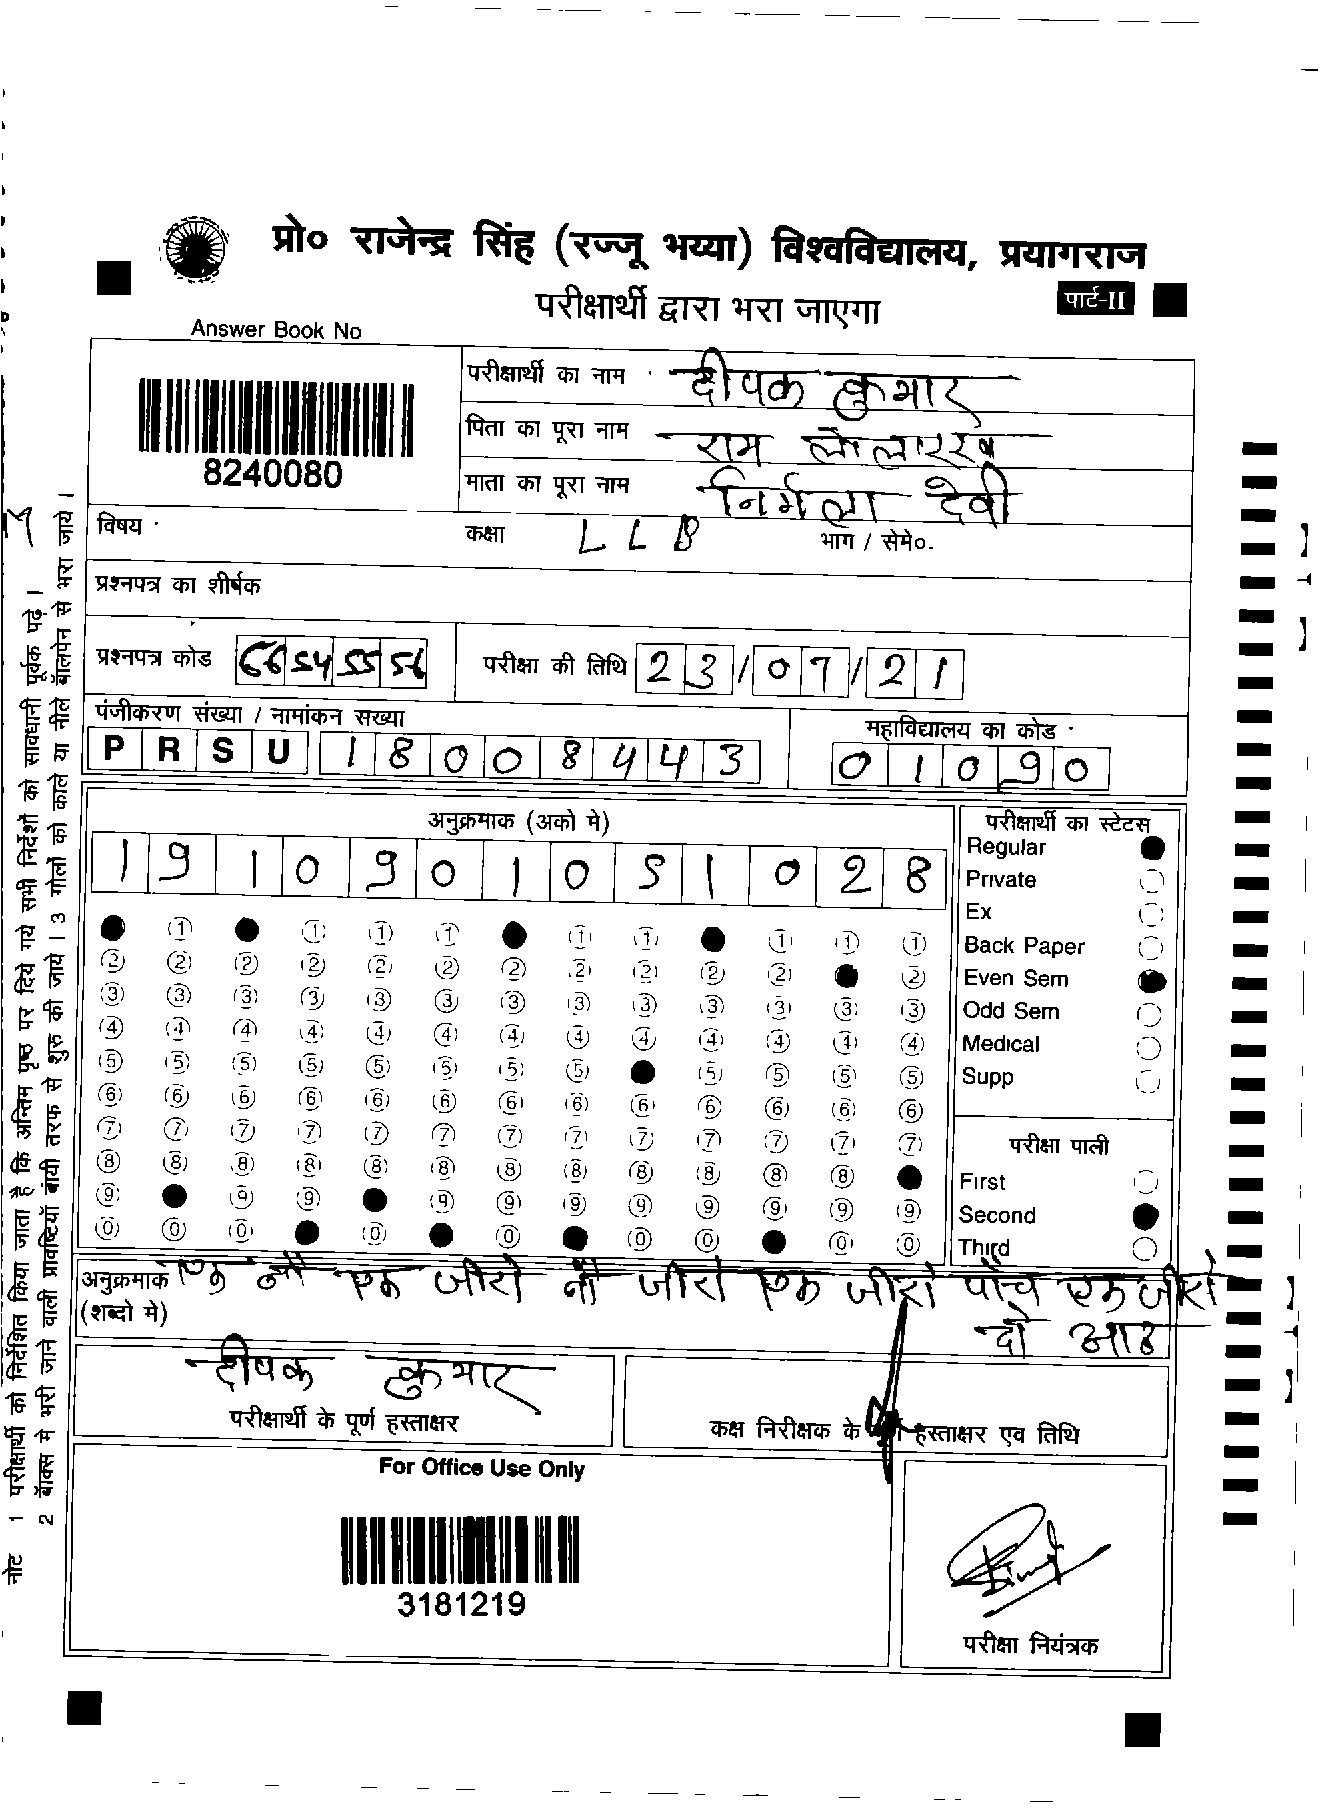 प्रो० राजेन्द्र सिंह (रज्जू भय्या) विश्वविद्यालय, प्रयागराज
परीक्षार्थी द्वारा भरा जाएगा
पार्ट-II
Answer Book No
8240080
परीक्षार्थी का नाम दीपक कुमार
पिता का पूरा नाम राम
माता का पूरा नाम निर्मला देवी
विषय
कक्षा L L B
भाग / सेमे०.
प्रश्नपत्र का शीर्षक
प्रश्नपत्र कोड
परीक्षा की तिथि 23/07/21
पंजीकरण संख्या / नामांकन सख्या
P R S U 1 8 0 0 8 4 4 3
महाविद्यालय का कोड
0 1 0 9 0
अनुक्रमाक (अको मे)
1 9 1 0 9 0 1 0 5 1 0 2 8
परीक्षार्थी का स्टेटस
Regular
Private
Ex
Back Paper
Even Sem
Odd Sem
Medical
Supp
परीक्षा पाली
First
Second
Third
अनुक्रमाक एक नौ एक जीरो नौ जीरो एक जीरो पाँच एक जीरो
(शब्दो मे) दो आठ
दीपक कुमार
परीक्षार्थी के पूर्ण हस्ताक्षर
कक्ष निरीक्षक के हस्ताक्षर एव तिथि
For Office Use Only
3181219
परीक्षा नियंत्रक
नोट 1 परीक्षार्थी को निर्देशित किया जाता है कि अन्तिम पृष्ठ पर दिये गये सभी निर्देशों को सावधानी पूर्वक पढ़े।
2 बॉक्स मे भरी जाने वाली प्रावष्टियाँ बायी तरफ से शुरु की जाये। 3 गोलों को काले या नीले बॉलपेन से भरा जाये।